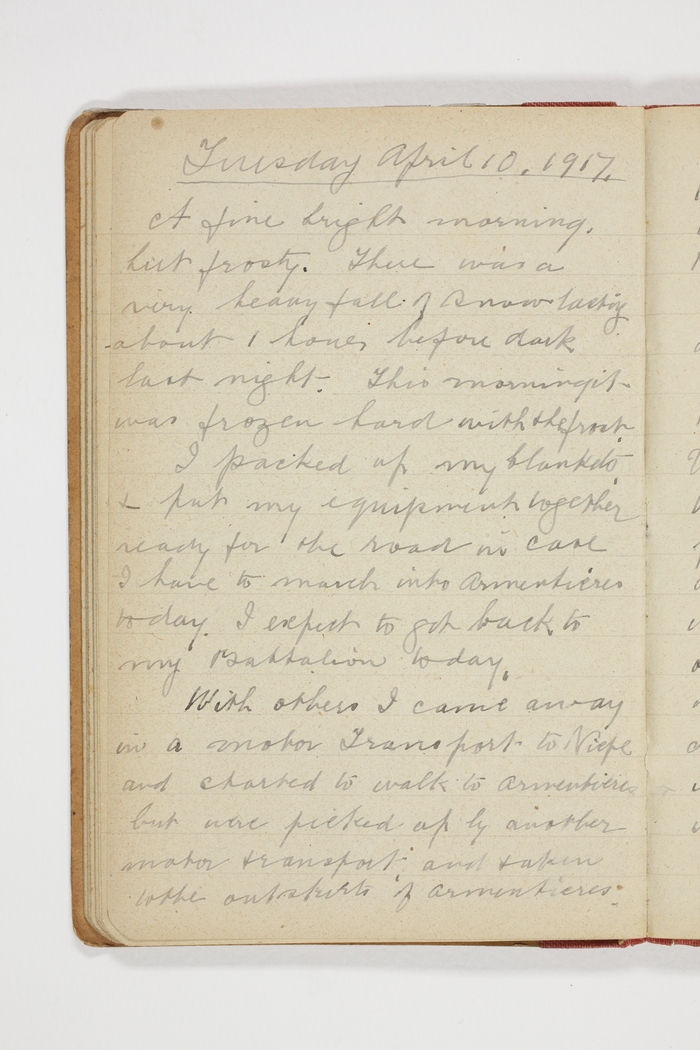 Tuesday April 10, 1917.
A fine bright morning,
but frosty. There was a
very heavy fall of snow lasting
about 1 hour, before dark
last night. This morning it
was frozen hard with the frost.
I packed up my blankets
& put my equipment together
ready for the road in case
I have to march into Armentieres
today. I expect to get back to
my Battalion today.
With others I came away
in a motor Transport to Niepe
and started to walk to Armentieres
but were picked up by another
motor transport, and taken
to the outskirts of Armentieres.